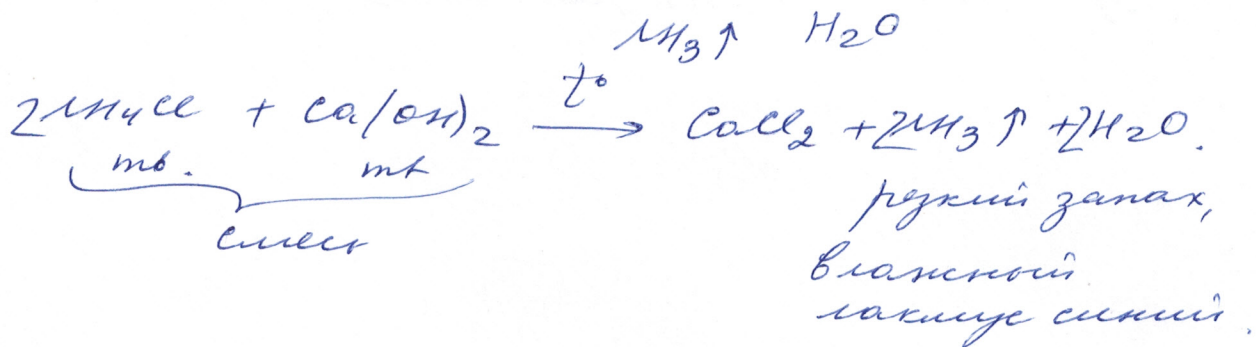 NH₃↑ H₂O
t°
2NH₄Cl + Ca(OH)₂ → CaCl₂ + 2NH₃↑ + 2H₂O.
тв. тв
смесь
резкий запах,
влажный
лакмус синий.